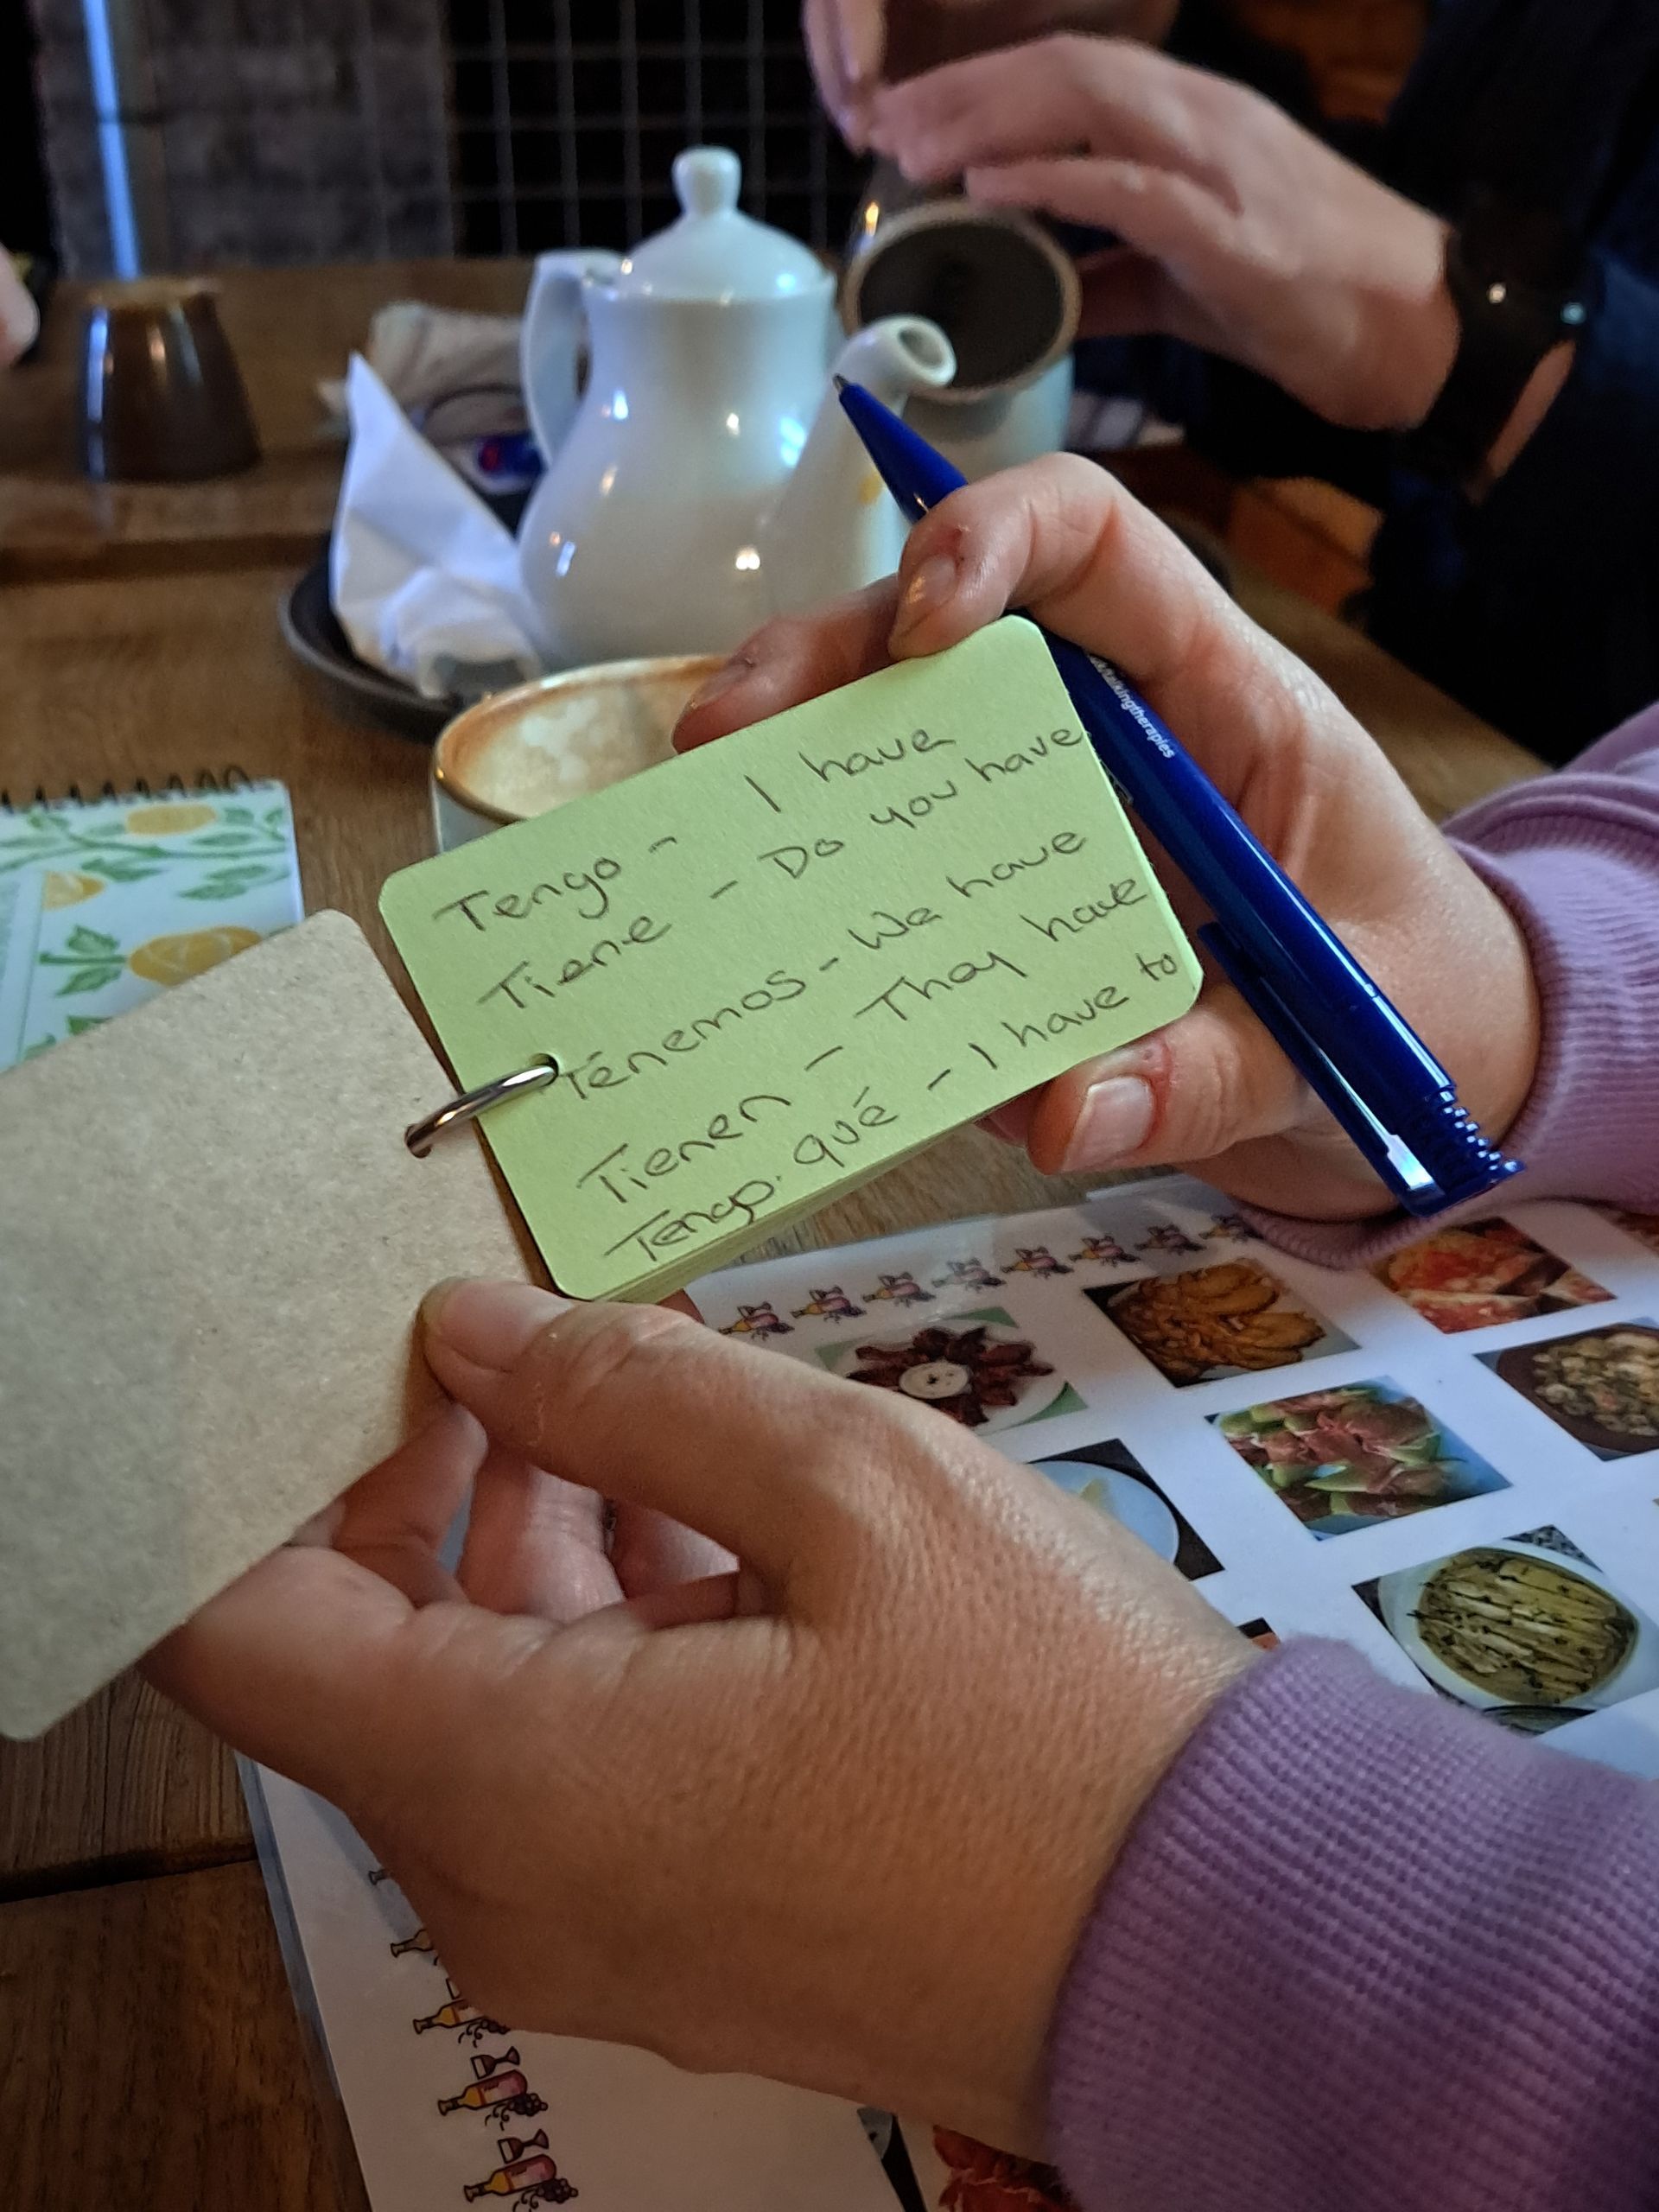 Tengo - I have
Tiene - Do you have
Ténemos - We have
Tienen - They have
Tengo. qué - I have to
talkingtherapies